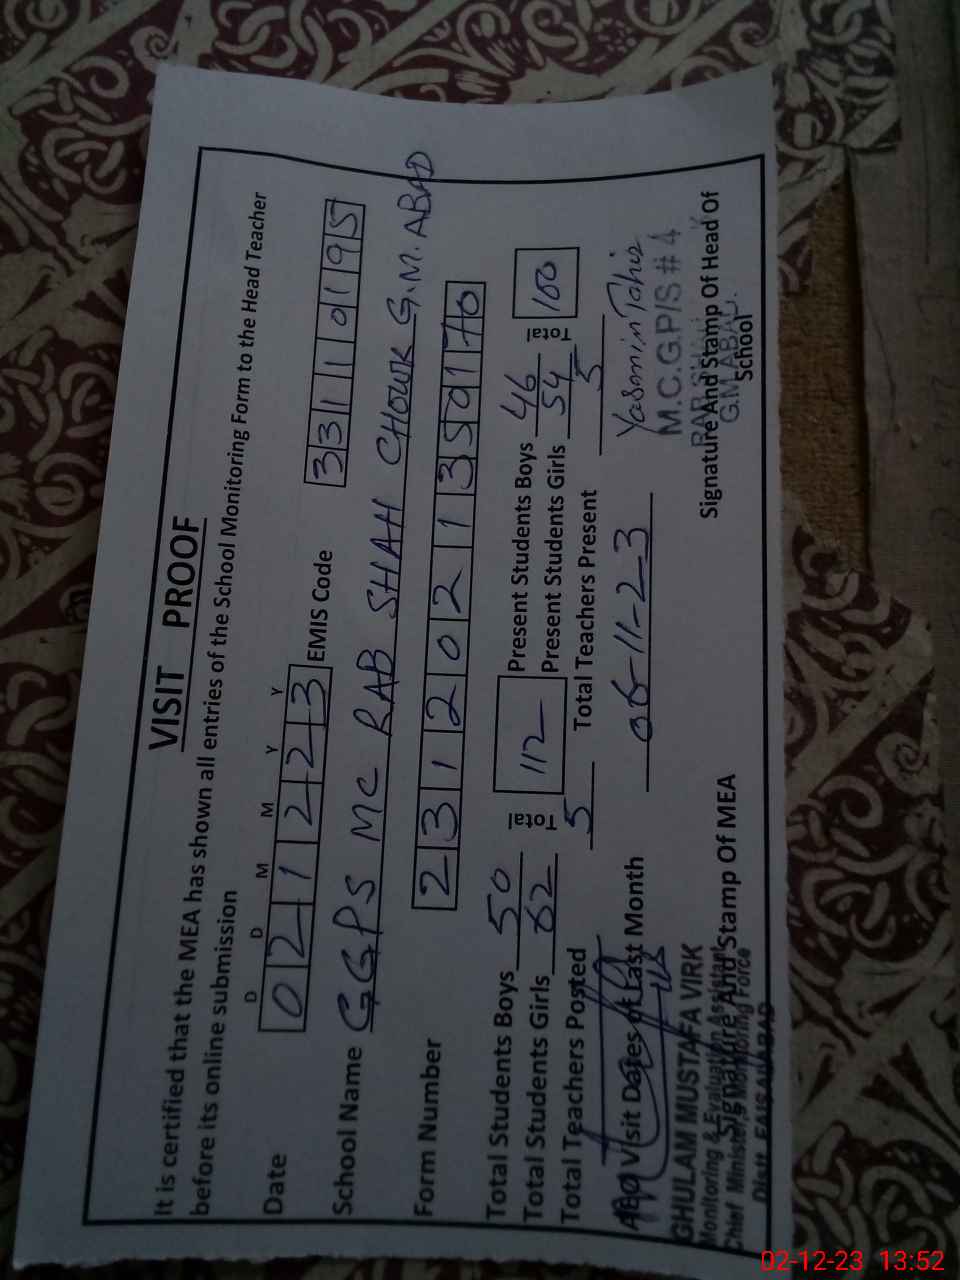 VISIT PROOF
It is certified that the MEA has shown all entries of the School Monitoring Form to the Head Teacher
before its online submission
D D M M Y Y
Date 0 2 1 2 2 3 EMIS Code 3 3 1 1 0 1 9 5
School Name GGPS MC RAB SHAH CHOWK G.M. ABAD
Form Number 2 3 1 2 0 2 1 3 5 9 1 70
Total Students Boys 50 Total 112 Present Students Boys 46 Total 100
Total Students Girls 62 Present Students Girls 54
Total Teachers Posted 5 Total Teachers Present 5
Visit Dates of Last Month 06-11-23 Yasmin Tahir
GHULAM MUSTAFA VIRK M.C.G.P/S # 4
Monitoring & Evaluation Assistant
Signature And Stamp Of MEA Signature And Stamp Of Head Of
School
Chief Minister's Monitoring Force G.M ABAD.
Distt. FAISALABAD
02-12-23 13:52